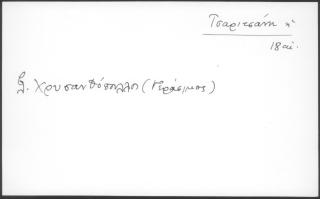 Τσαριτσάνη
18 αἰ.
Χρυσανθόπουλλοι (Γεράσιμος)